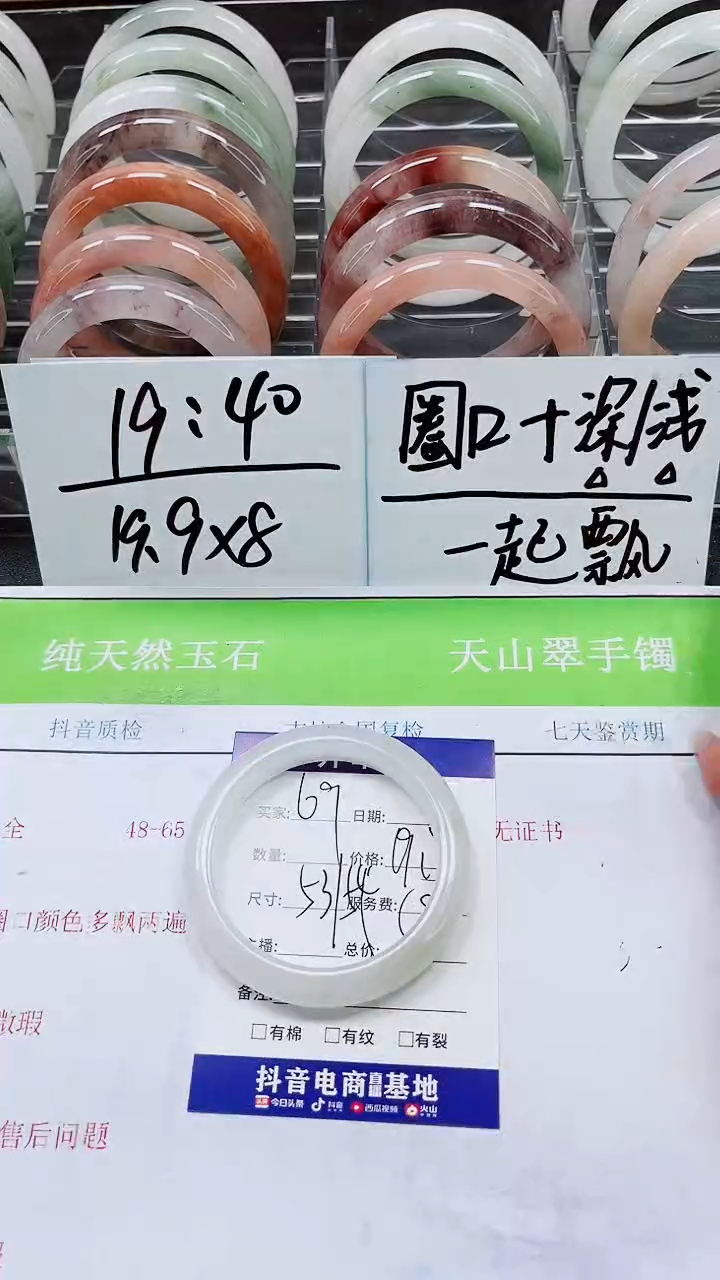 19:40
19.9x8
圈口+深/浅
一起飘
纯天然玉石 天山翠手镯
抖音质检 复检 七天鉴赏期
买家: 69 日期:
全 48-65 无证书
数量: 价格:
尺寸: 53/54 服务费:
圈口颜色多飘两遍
播: 总价:
备注:
微瑕
□有棉 □有纹 □有裂
抖音电商直播基地
今日头条 抖音 西瓜视频 火山
售后问题